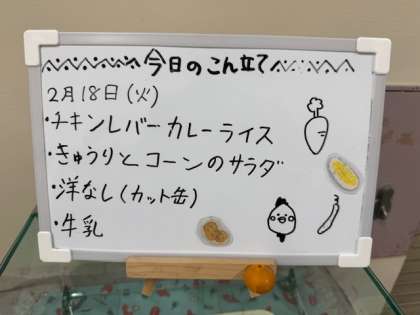 今日のこん立て
2月18日(火)
・チキンレバーカレーライス
・きゅうりとコーンのサラダ
・洋なし(カット缶)
・牛乳